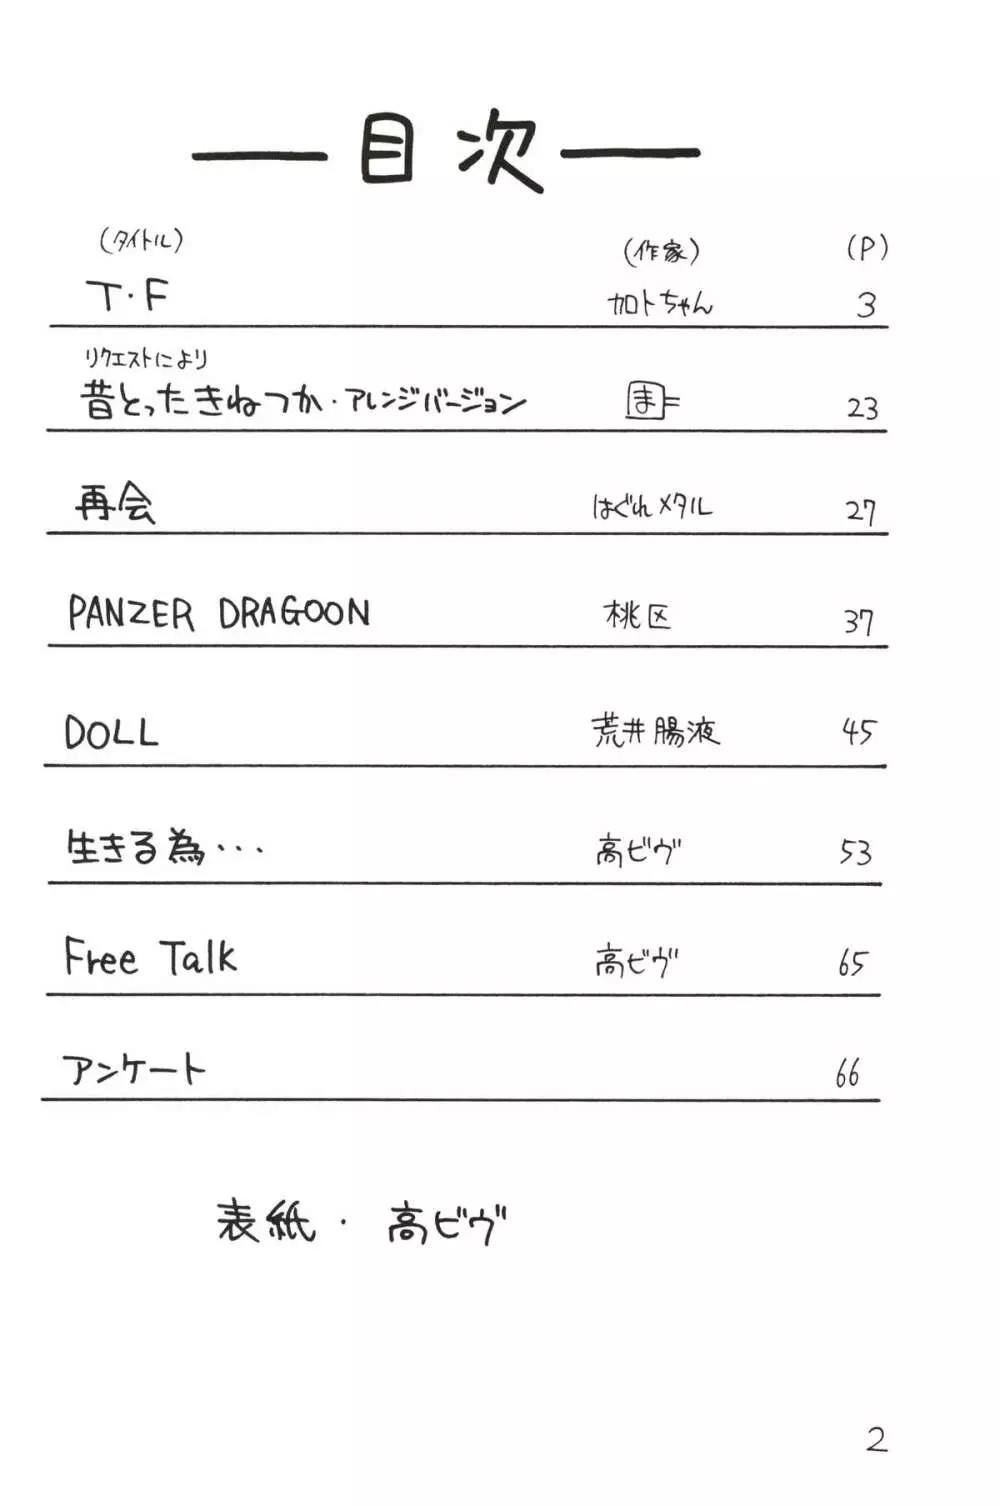 目次
(タイトル) (作家) (P)
T・F カロトちゃん 3
リクエストにより
昔とったきねつか・アレンジバージョン ま 23
再会 はぐれメタル 27
PANZER DRAGOON 桃区 37
DOLL 荒井腸液 45
生きる為・・・ 高ビヴ 53
Free Talk 高ビヴ 65
アンケート 66
表紙・高ビヴ
2